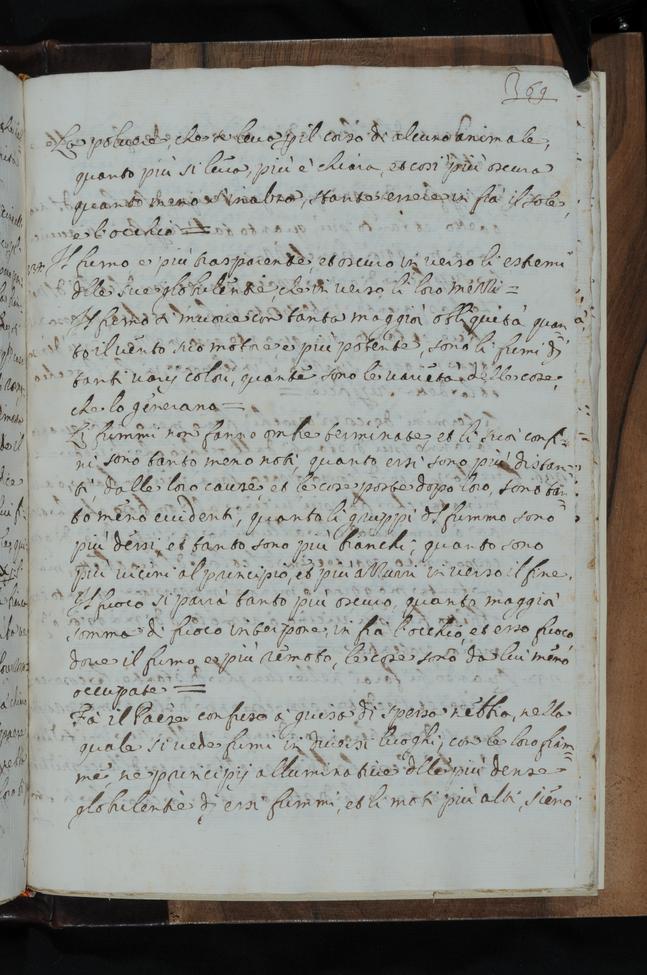 369
La polvere, che si leva p il corso di alcuno animale,
quanto più si leva, più è chiara, et così più oscura
quanto meno s'inalza, stante essere in fra il sole,
e l'occhio =
Il fumo è più trasparente, et oscuro in verso li estremi
delle sue globulentie, che in verso li loro mezzi =
Il fumo si muove con tanta maggior obliquità quan
to il vento suo motore è più potente, sono li fumi di
tanti varij colori, quante sono le varietà delle cose,
che lo generano =
Li fummi non fanno ombre terminate, et li suoi confi=
ni sono tanto meno noti, quanto essi sono più distan=
ti, dalle loro cause, et le cose poste dopo loro, sono tan=
to meno evidenti, quanto li gruppi del fummo sono
più densi, et tanto sono più bianchi, quanto sono
più vicini al principio, et più azzurri in verso il fine.
Il fuoco si parrà tanto più oscuro, quanto maggior
somma di fuoco interpone, in fra l'occhio, et esso fuoco
dove il fumo, è più remoto, le cose sono da lui meno
occupate =
Fa il Paese confuso a guisa di spessa nebbia, nella
quale si vede fumi in diversi luoghi, con le loro fiam=
me ne principij alluminatrice delle più dense
globulentie di essi fummi, et li moti più alti, sieno